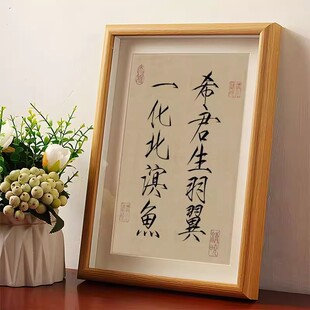 希君生羽翼
一化北溟魚